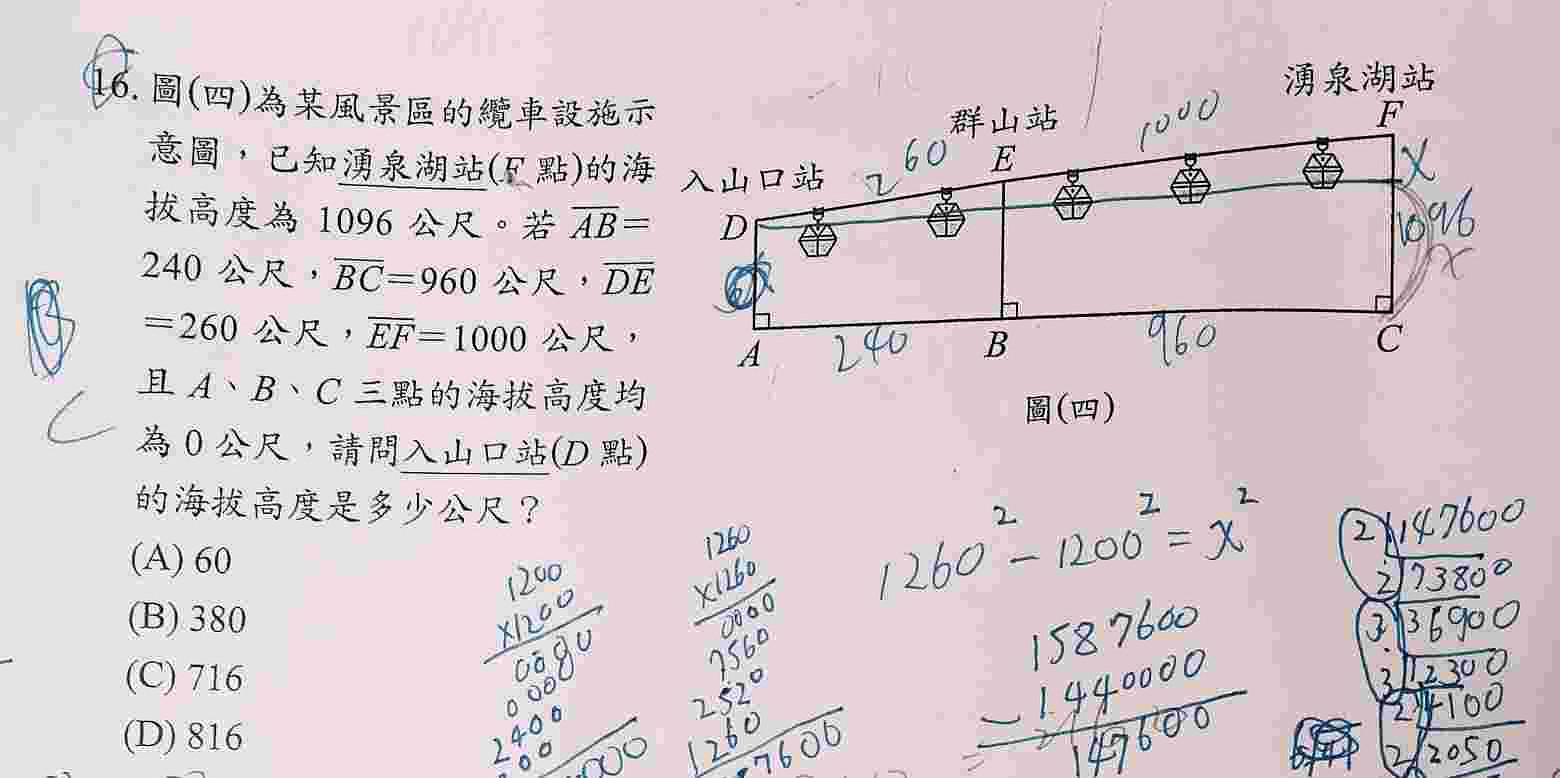 16. 圖(四)為某風景區的纜車設施示
意圖，已知湧泉湖站(F 點)的海
拔高度為 1096 公尺。若 AB=
240 公尺，BC=960 公尺，DE
=260 公尺，EF=1000 公尺，
且 A、B、C 三點的海拔高度均
為 0 公尺，請問入山口站(D 點)
的海拔高度是多少公尺？
(A) 60
(B) 380
(C) 716
(D) 816
C
湧泉湖站
F
群山站
E
入山口站
D
260
1000
x
1096
x
A
B
C
240
960
圖(四)
1200
×1200
2400
1260
×1260
0000
7560
2520
1260
1260² - 1200² = x²
1587600
- 1440000
147600
2 147600
2 73800
3 36900
3 12300
2 4100
2 2050